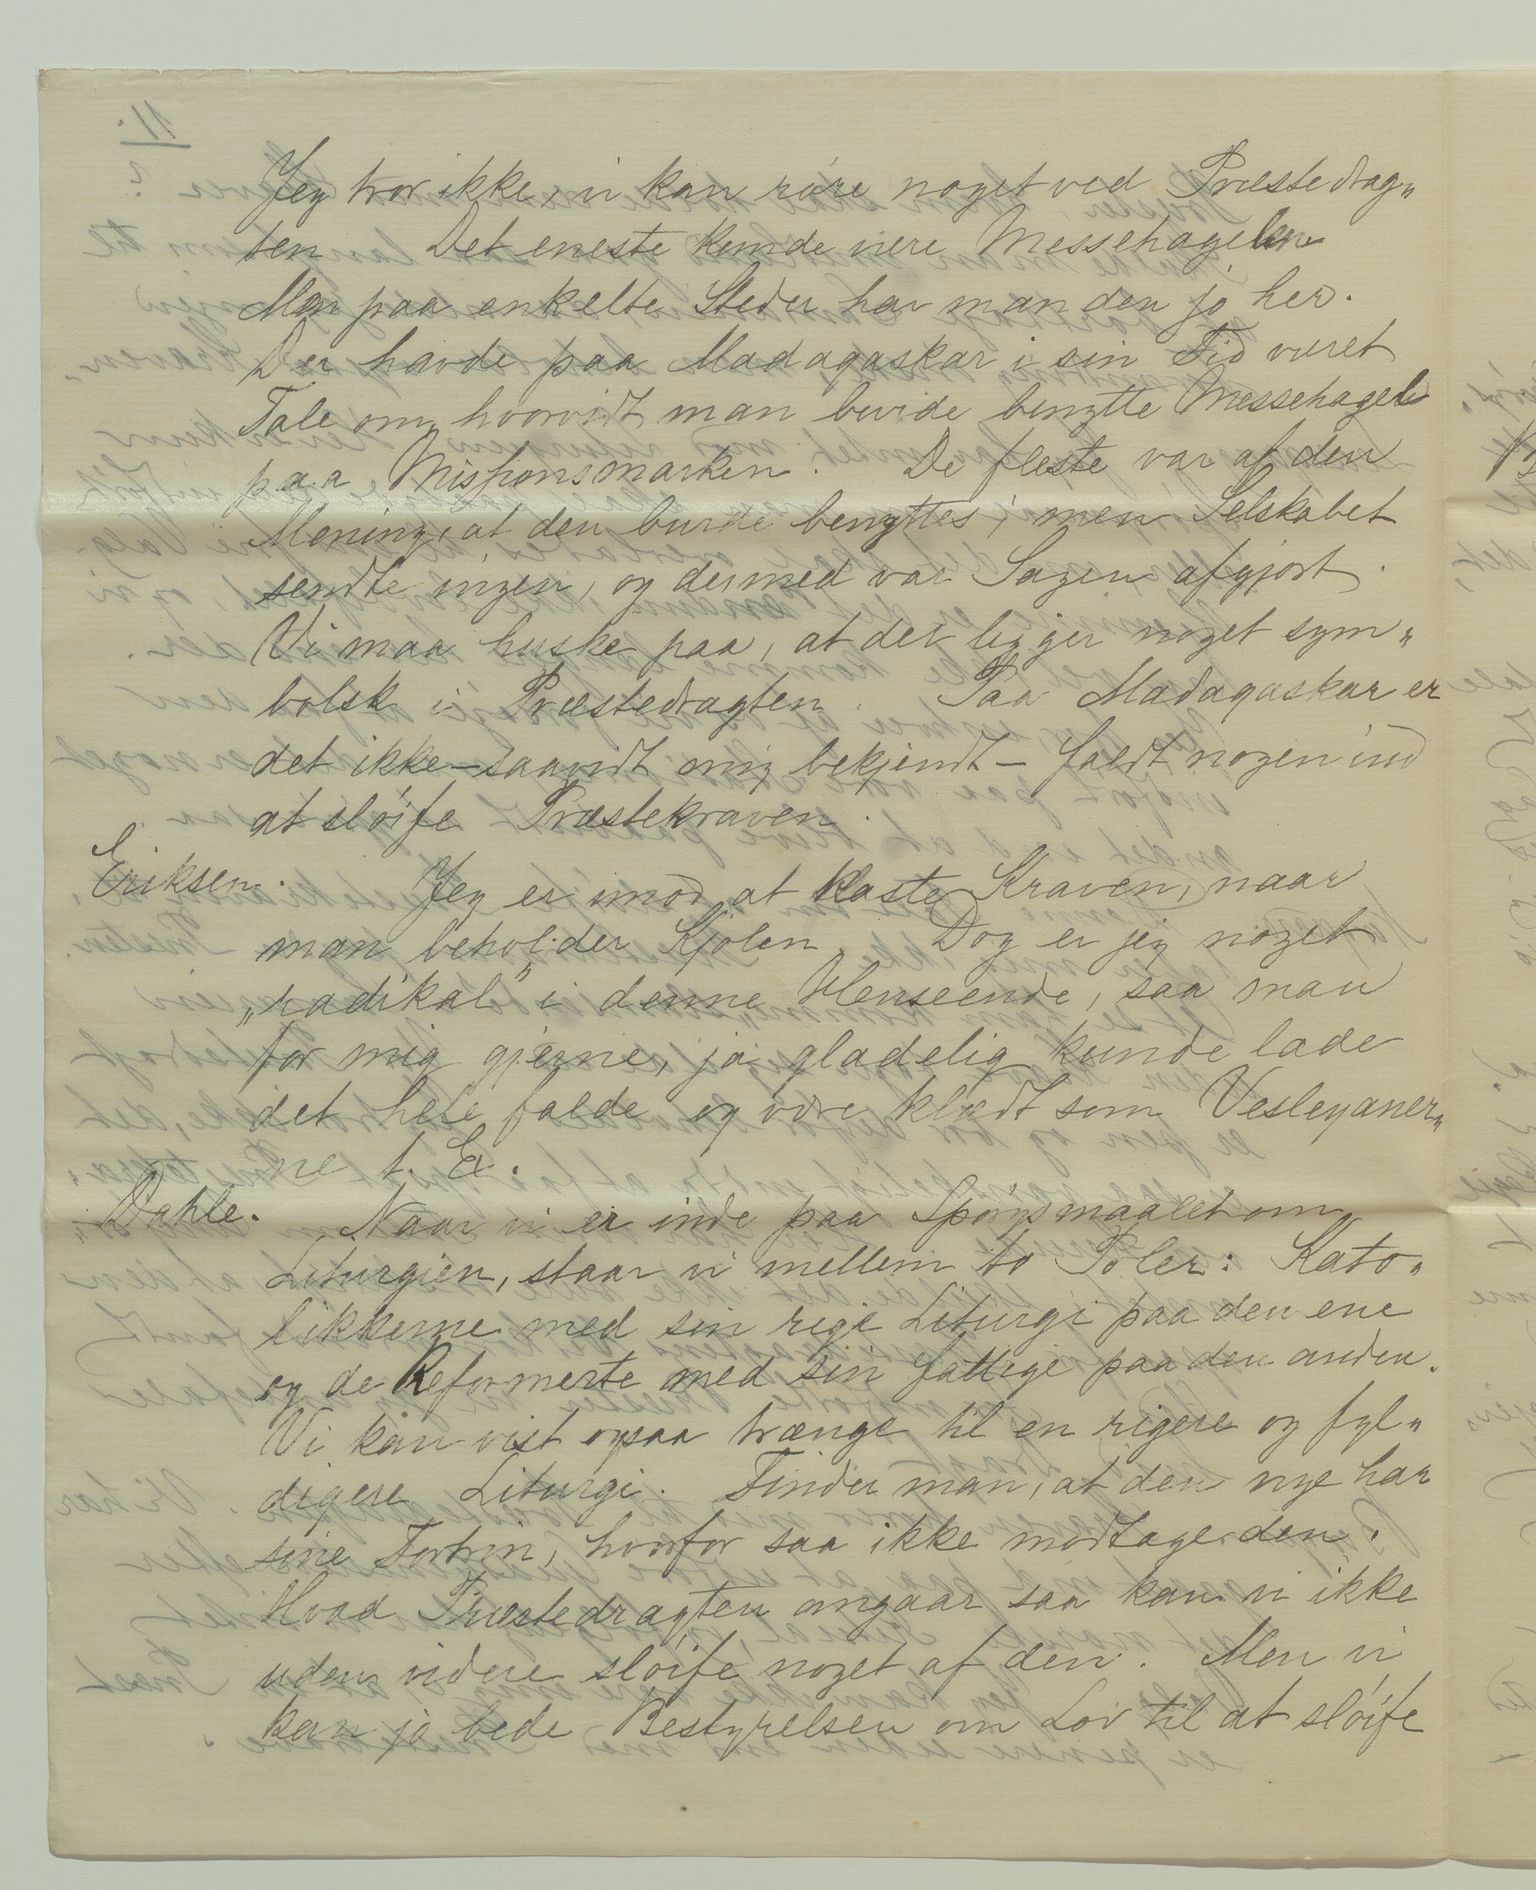 Jeg tror ikke, vi kan röre noget ved Præstedrag„
ten. Det eneste kunde være Messehagelen
Men paa enkelte Steder har man den jo her.
Der havde paa Madagaskar i sin Tid været
Tale om, hvorvidt man burde benytte Messehagel
paa Missionsmarken. De fleste var af den
Mening, at den burde benyttes; men Selskabet
sendte ingen, og dermed var Sagen afgjort.
Vi maa huske paa, at det ligger noget sym„
bolsk i Præstedragten. Paa Madagaskar er
det ikke – saavidt mig bekjendt – faldt nogen ind
at slöife Præstekraven.
Eriksen. Jeg er imod at kaste Kraven, naar
man beholder Kjolen. Dog er jeg noget
„radikal” i denne Henseende, saa man
for mig gjerne, ja gladelig kunde lade
det hele falde og være klædt som Vesleyaner„
ne t. Ex.
Dahle. Naar vi er inde paa Spörgsmaalet om
Liturgien, staar vi mellem to Poler: Kato„
likkerne med sin rige Liturgi paa den ene
og de Reformerte med sin fattige paa den anden.
Vi kan vist ogsaa trænge til en rigere og fyl„
digere Liturgi. Finder man, at den nye har
sine Fortrin, hvorfor saa ikke modtage den.
Hvad Præstedragten angaar saa kan vi ikke
uden videre slöife noget af den. Men vi
kan jo bede Bestyrelsen om Lov til at slöife